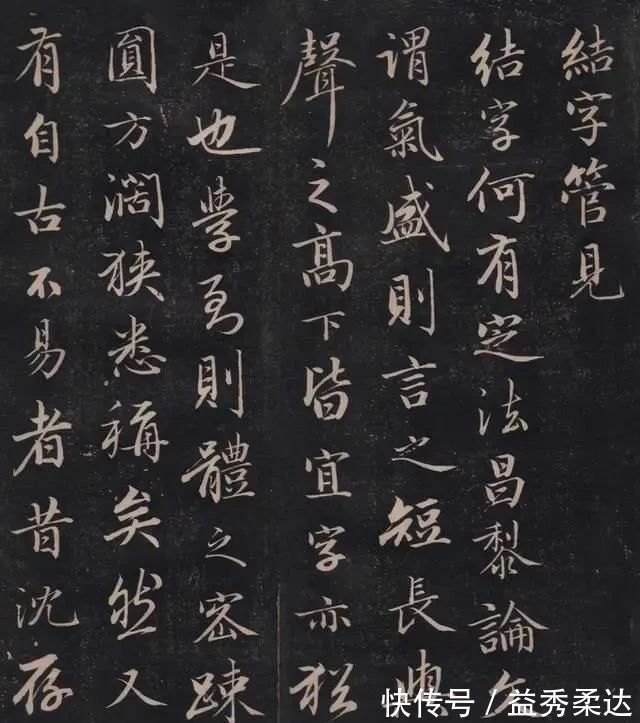 結字管見
結字何有定法昌黎論文
謂氣盛則言之短長與
聲之高下皆宜字亦猶
是也學到則體之密踈
圓方濶狹悉稱矣然又
有自古不易者昔沈存
快传号 / 益秀柔达